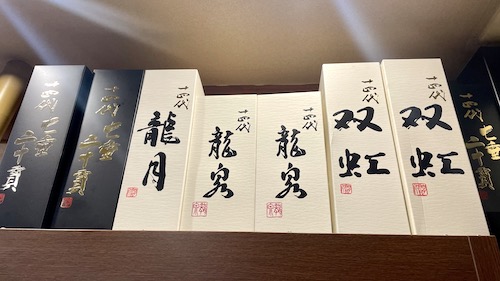 十四代
七垂
二十貫
十四代
七垂
二十貫
十四代
龍月
十四代
龍泉
十四代
龍泉
十四代
双虹
十四代
双虹
十四代
七垂
二十貫